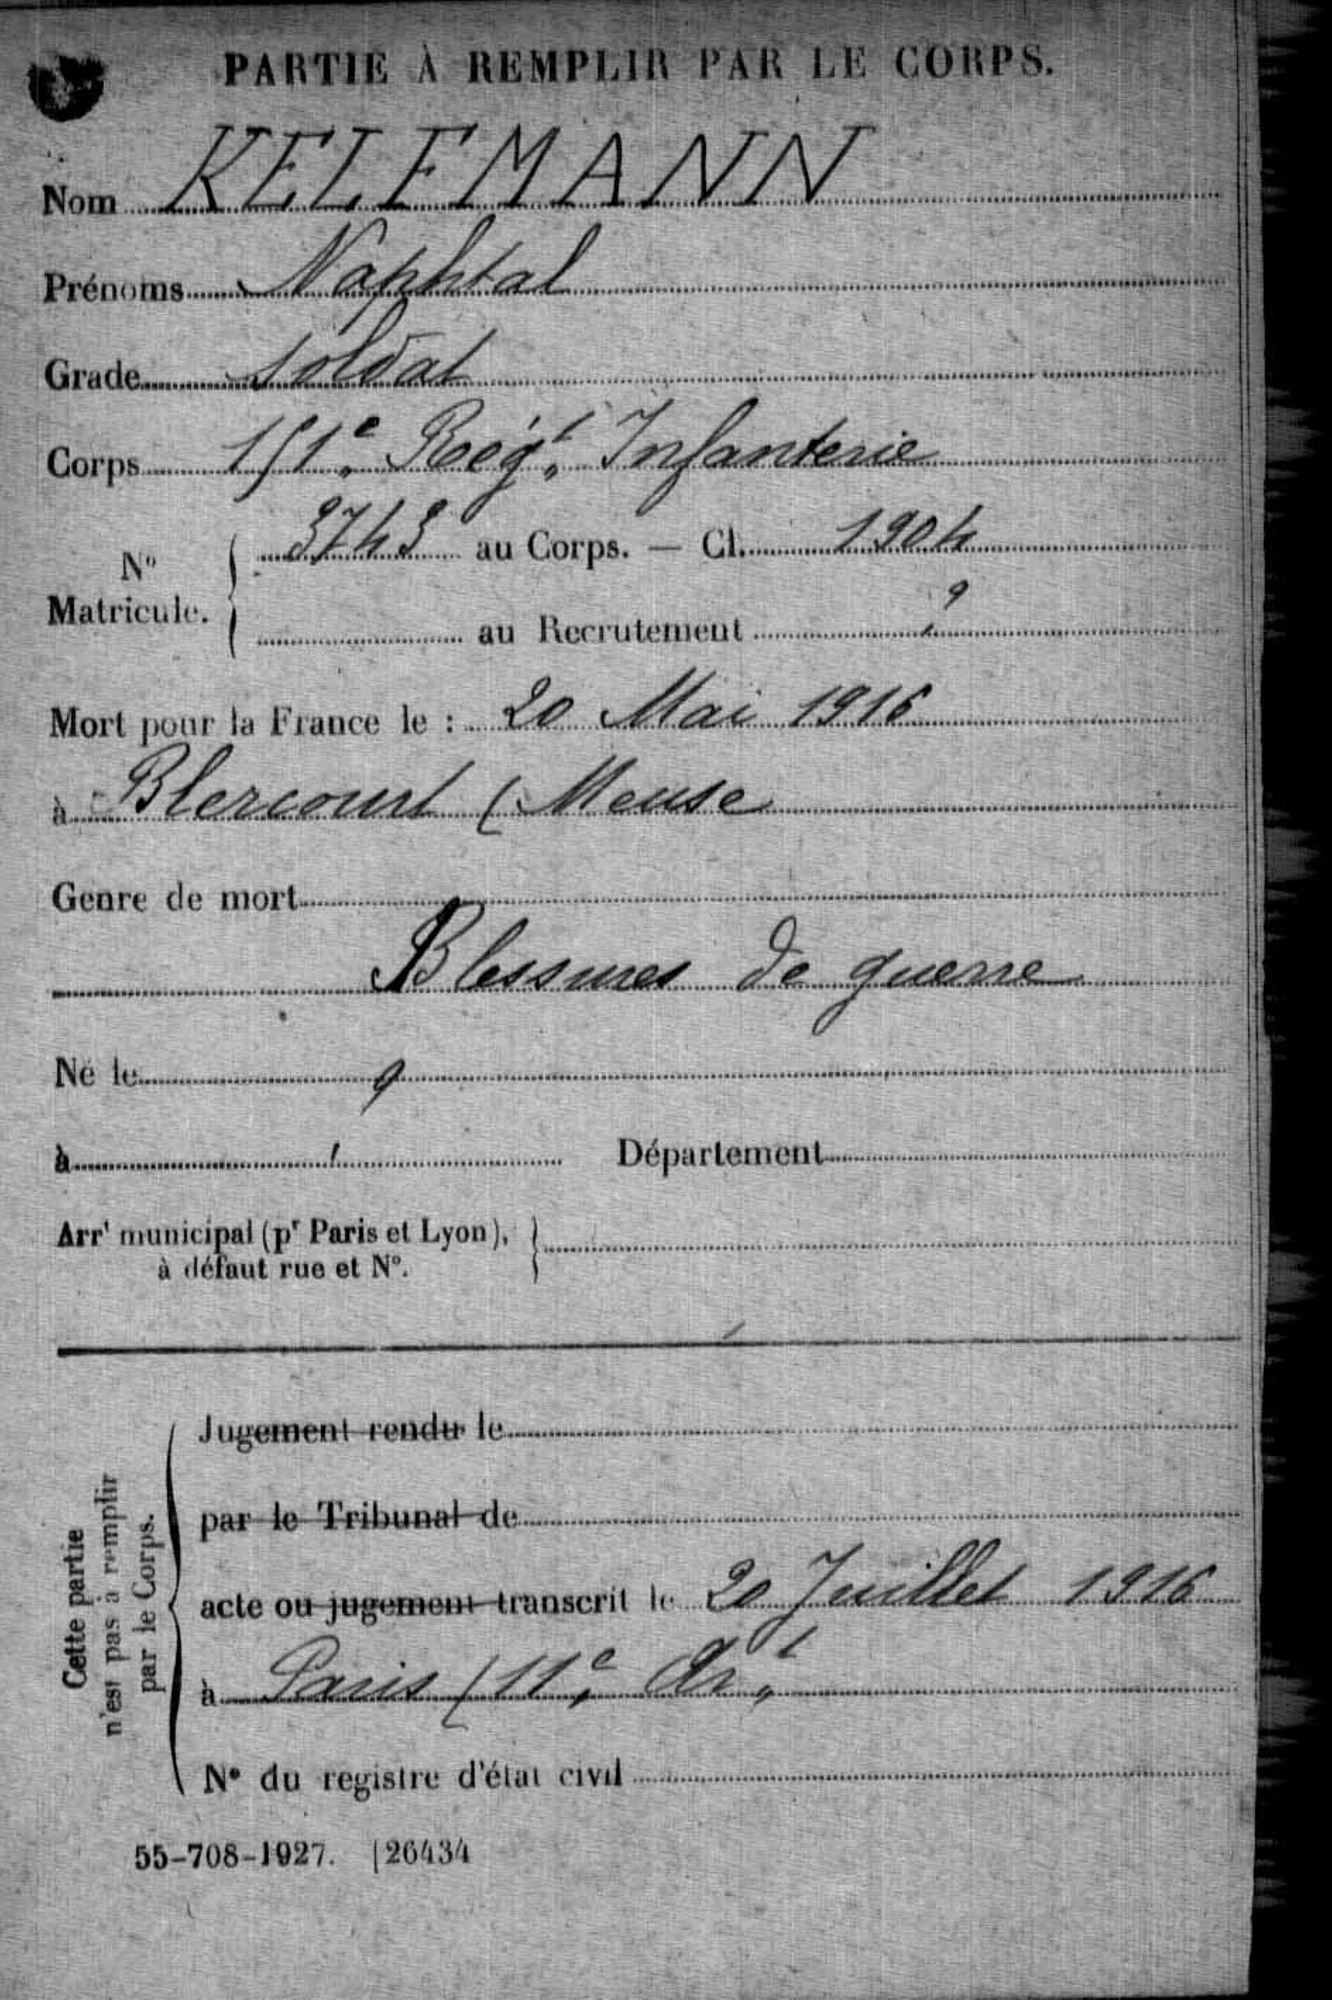 PARTIE À REMPLIR PAR LE CORPS.
Nom KELEMANN
Prénoms Naphtal
Grade soldat
Corps 151e Régt Infanterie
No Matricule. { 3743 au Corps. — Cl. 1904
au Recrutement ?
Mort pour la France le : 20 Mai 1916
à Blercourt (Meuse
Genre de mort
Blessures de guerre
Né le ?
à Département
Arrt municipal (pr Paris et Lyon),
à défaut rue et No. }
Cette partie
n'est pas à remplir
par le Corps.
Jugement rendu le
par le Tribunal de
acte ou jugement transcrit le 20 Juillet 1916
à Paris (11e Art
No du registre d'état civil
55-708-1927. [26434